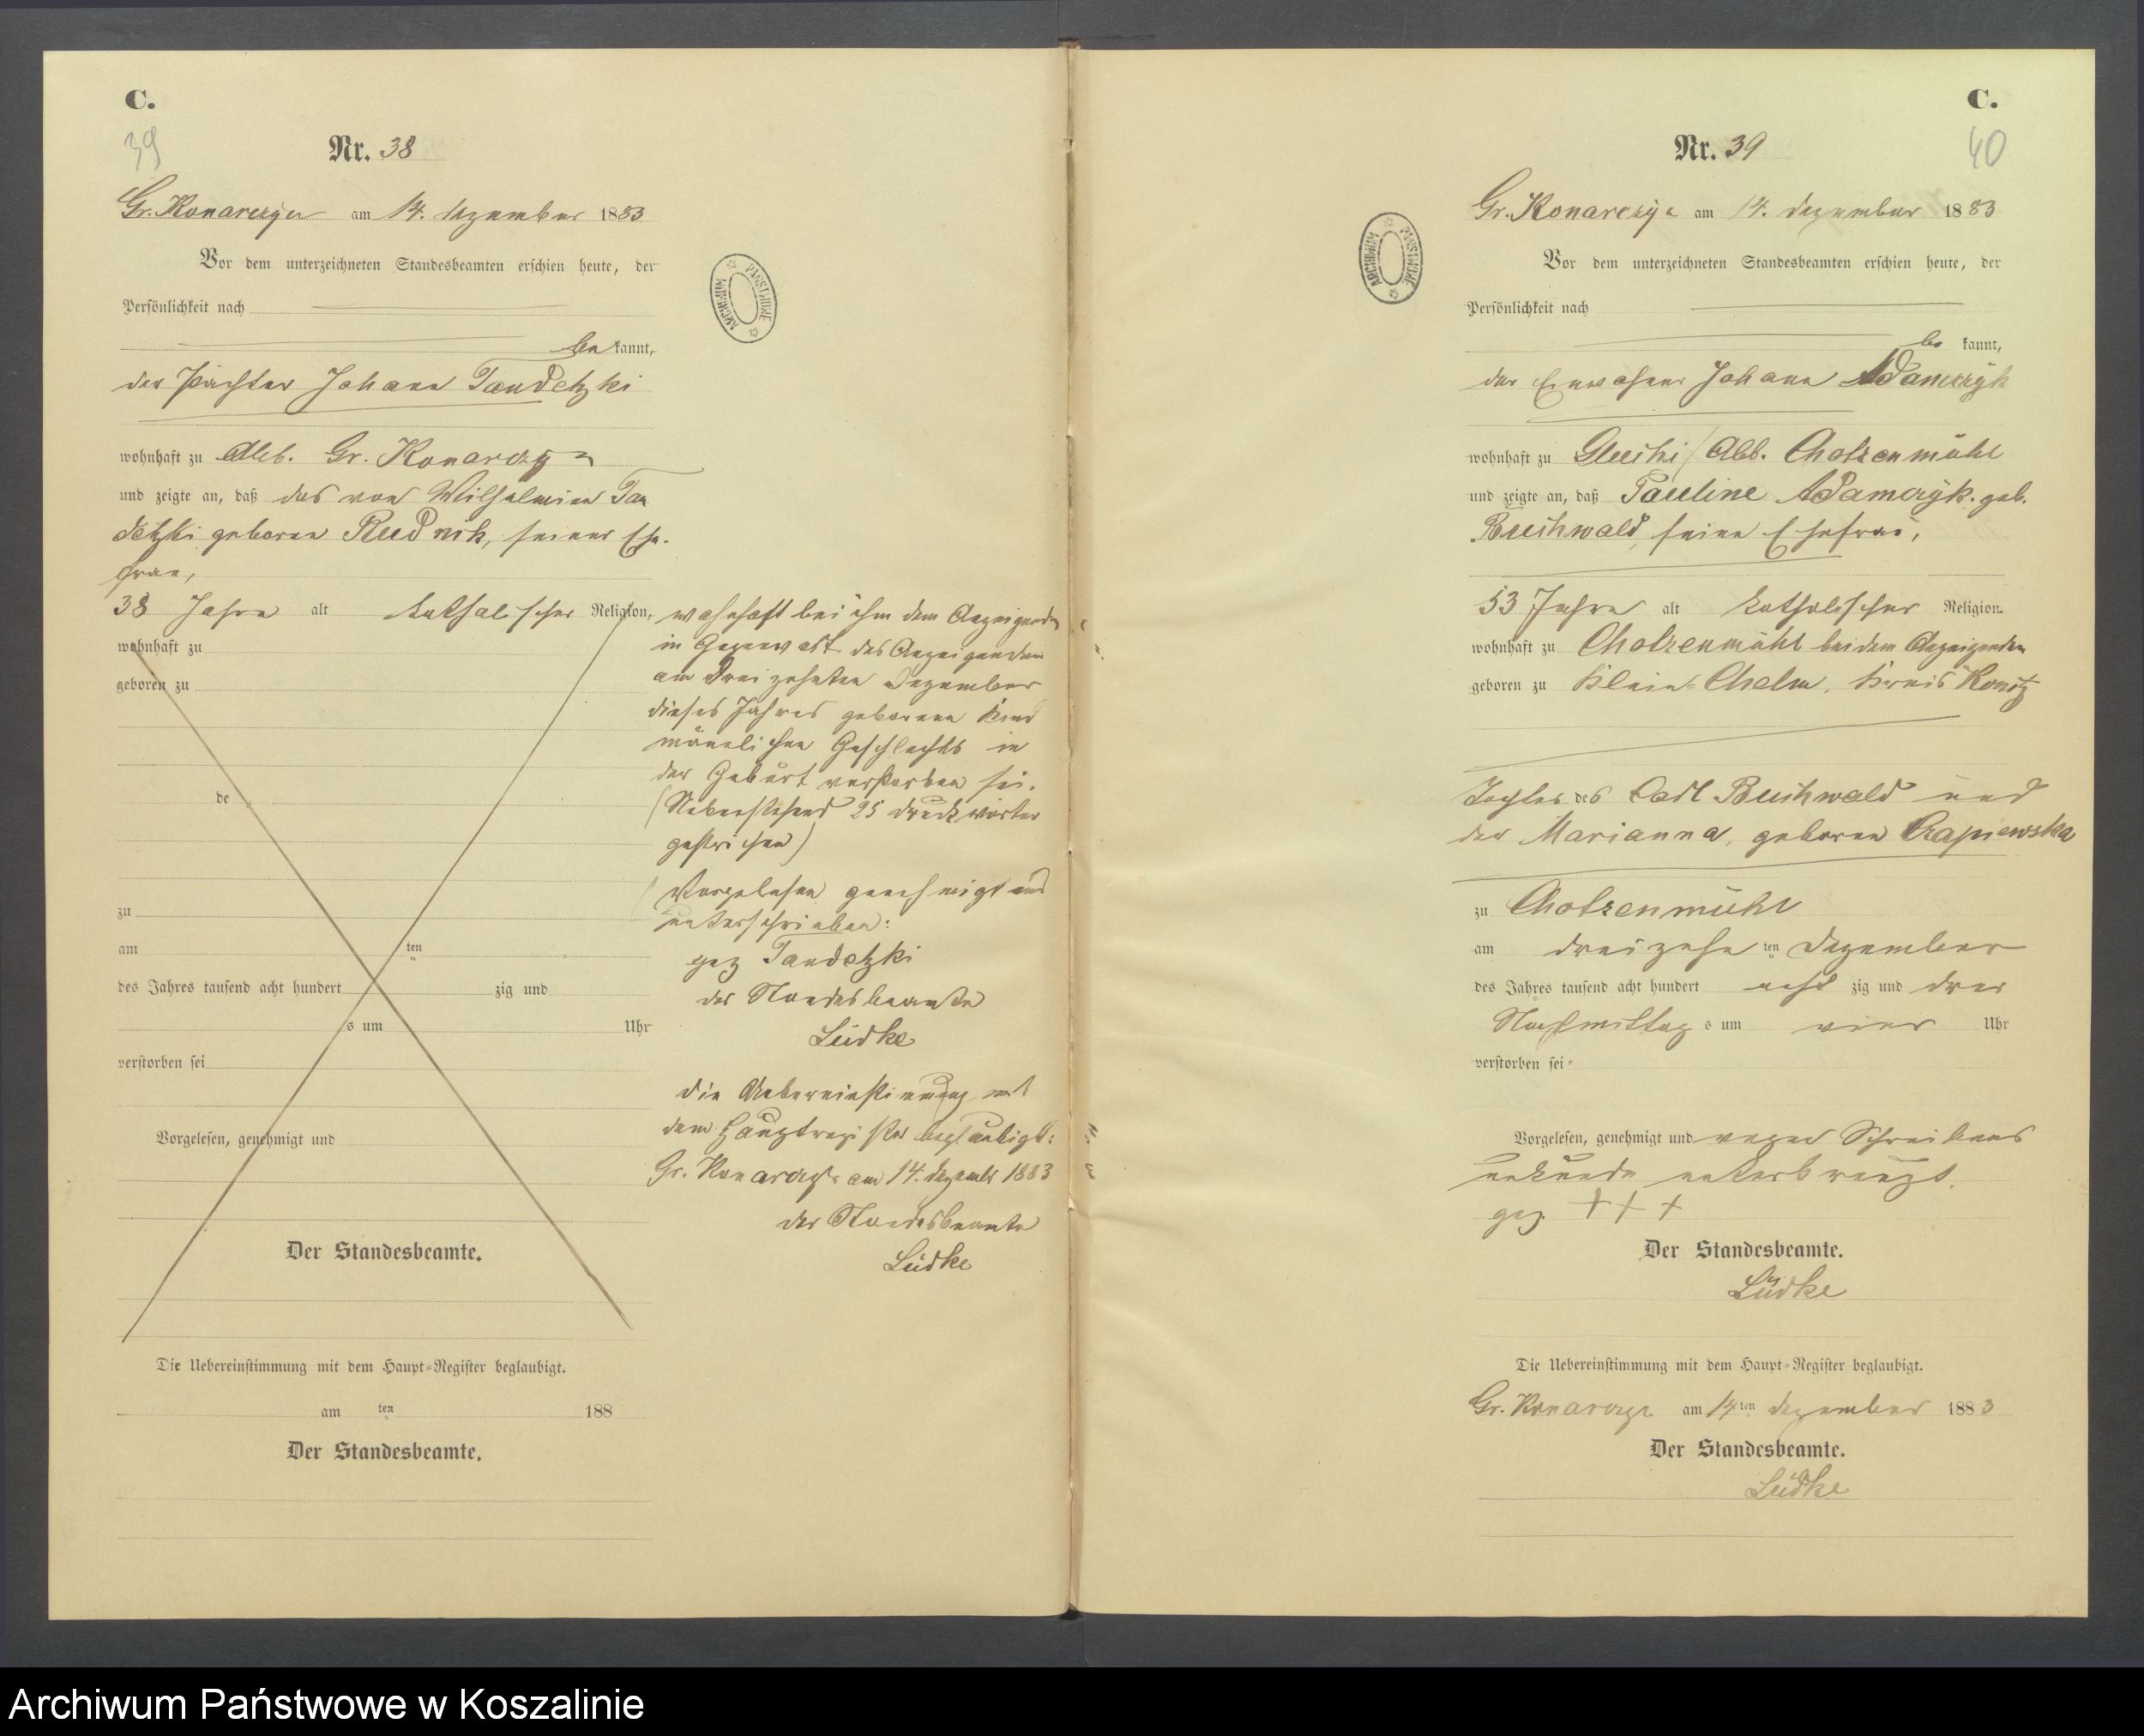 C.
39
Nr. 38
Gr. Konarczyn am 14. Dezember 1883
Vor dem unterzeichneten Standesbeamten erschien heute, der
Persönlichkeit nach
be kannt,
der Pächter Johann Tandetzki
wohnhaft zu Abb. Gr. Konarczyn
und zeigte an, daß das von Wilhelmine Tan
detzki geborene Rudnik, seiner Ehe-
frau,
38 Jahre alt katholischer Religion,
wohnhaft zu
geboren zu
de
zu
am ten
des Jahres tausend acht hundert zig und
s um Uhr
verstorben sei
Vorgelesen, genehmigt und
Der Standesbeamte.
Die Uebereinstimmung mit dem Haupt-Register beglaubigt.
am ten 188
Der Standesbeamte.
wohnhaft bei ihm dem Anzeigenden
in Gegenwart des Anzeigenden
am dreizehnten Dezember
dieses Jahres geborene Kind
männlichen Geschlechts in
der Geburt verstorben sei.
(Nebenstehend 25 Druckwörter
gestrichen)
Vorgelesen genehmigt und
unterschrieben:
gez Tandetzki
der Standesbeamte
Lüdke
die Uebereinstimmung mit
dem Hauptregister beglaubigt:
Gr. Konarczyn am 14. Dezember 1883
der Standesbeamte
Lüdke
ARCHIWUM PAŃSTWOWE
C.
40
Nr. 39
Gr. Konarczyn am 14. Dezember 1883
Vor dem unterzeichneten Standesbeamten erschien heute, der
Persönlichkeit nach
be kannt,
der Einwohner Johann Adamczyk
wohnhaft zu Gluchi / Abb. Chotzenmühl
und zeigte an, daß Pauline Adamczyk geb.
Buchwald, seine Ehefrau,
53 Jahre alt katholischer Religion
wohnhaft zu Chotzenmühl bei dem Anzeigenden
geboren zu Klein-Chelm, Kreis Konitz
Tochter des Carl Buchwald und
der Marianna, geborene Czapiewska
zu Chotzenmühl
am dreizehn ten Dezember
des Jahres tausend acht hundert acht zig und drei
Nachmittag s um vier Uhr
verstorben sei
Vorgelesen, genehmigt und wegen Schreibens
unkunde unterkreuzt.
gez. + + +
Der Standesbeamte.
Lüdke
Die Uebereinstimmung mit dem Haupt-Register beglaubigt.
Gr. Konarczyn am 14ten Dezember 1883
Der Standesbeamte.
Lüdke
ARCHIWUM PAŃSTWOWE
Archiwum Państwowe w Koszalinie